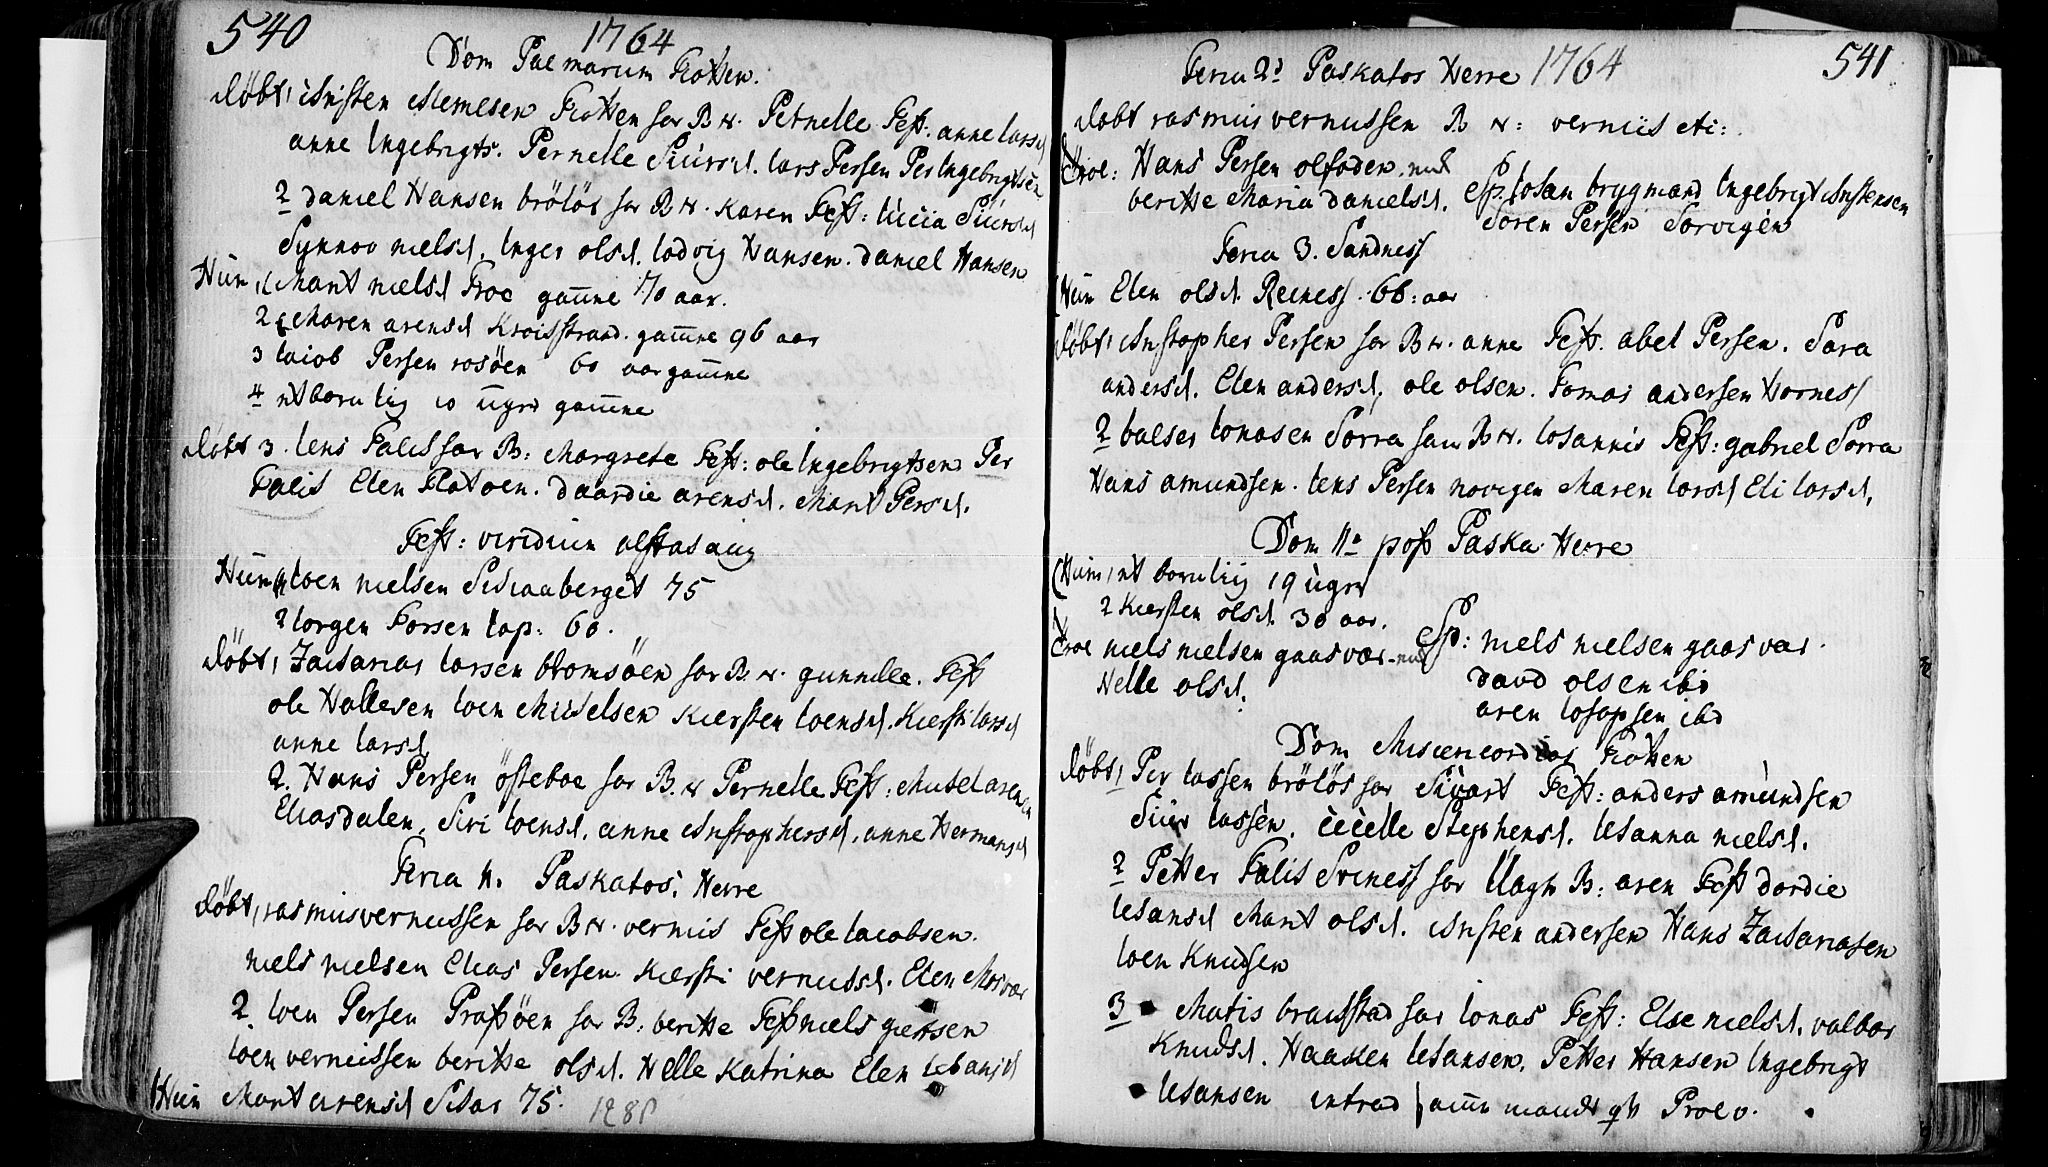 540
1764
Dom Palmarum Flotten.
døbt, Cristen Clemesen Flotten har B N. Petnelle Fest: anne lars d
anne Ingebrigts. Pernelle Siurs d. lars Persen Per Ingebrigtsen
2 daniel Hansen brölös har B N. Karen Fest: lucia Siurs d
Synnov niels d. Inger ols d. lodvig Hansen. daniel Hansen
Hum, Marit niels d Froe gamne 70 aar.
2 Maren arens d Kroisstrand. gamne 96 aar
3 Iacob Persen rosöen 60 aar gamne
4 it barn lig 10 uger gamne
døbt 3. Iens Falis har B: Margrete Fest: ole Ingebrigtsen Per
Falis Elen Flatoen. daardie arens d. Marit Pers d.
Fest: viridium alstasaug
Hum, Ioen nielsen Schaaberget 75
2 Iorgen Forsen lap: 60.
døbt, Zacharias larsen blomsöen har B N. gunnelle. Fest
ole Hallesen Ioen Michelsen Kiersten Ioens d. Kiersti lars d
anne lars d
2. Hans Persen östeboe har B. N Pernelle Fest: Michel arensen
Eliasdalen. Siri Ioens d. anne Cristophers d. anne Hermans d
Feria 1. Paskatos. Herre
døbt, rasmus vernussen har B N. vernus Fest ole Iacobsen.
niels nielsen Elias Persen. Kiersti vernus d. Elen Mosvær
2 Ioen Persen Prästöen har B: beritte Fest niels
Ioen vernussen beritte ols d. Nelle Katrina Elen
Hum Marit arens d Schar 75.
541
Feria 2d Paskatos Herre 1764
døbt rasmus vernussen B N: vernus
Troe: Hans Persen olfoden med
beritte Maria daniels d.
Sp. Iohan brygmand Ingebrigt Cristensen
Sören Persen Sorvigen
Feria 3. Sandness
Hum Elen ols d. Reiness. 66: aar
døbt, Cristopher Persen har B N. anne Fest. abel Persen. Sara
anders d. Elen anders d. ole olsen. Tomas andersen Hornes
2 balser Ionasen Sorra har B N. Iohannis Fest: gabriel Sorra
Hans amundsen. Iens Persen novigen Maren lars d Eli lars d.
Dom 1a post Paska Herre
Hum, it barn lig 19 uger
2 Kiersten ols d. 30 aar.
Troe niels nielsen gaasvær med
Nelle ols d.
Sp: niels nielsen gaasvar.
david olsen ibid
aren Iosapsen ibd
Dom Misericordias Flotten
døbt, Per lassen brölös har Sivart Fest: anders amundsen
Siur lassen. Cicelle Stephens d. Iohanna niels d.
2 Petter Falis Sviness har B: aren Fest dordie
Iohans d Marit ols d. Cristen andersen Hans Zachariasen
Ioen Knudsen
3 Matis har Ionas Fest: Else niels d. valbor
Knuds d. Haaken Iohansen. Petter Hansen Ingebrigt
Iohansen